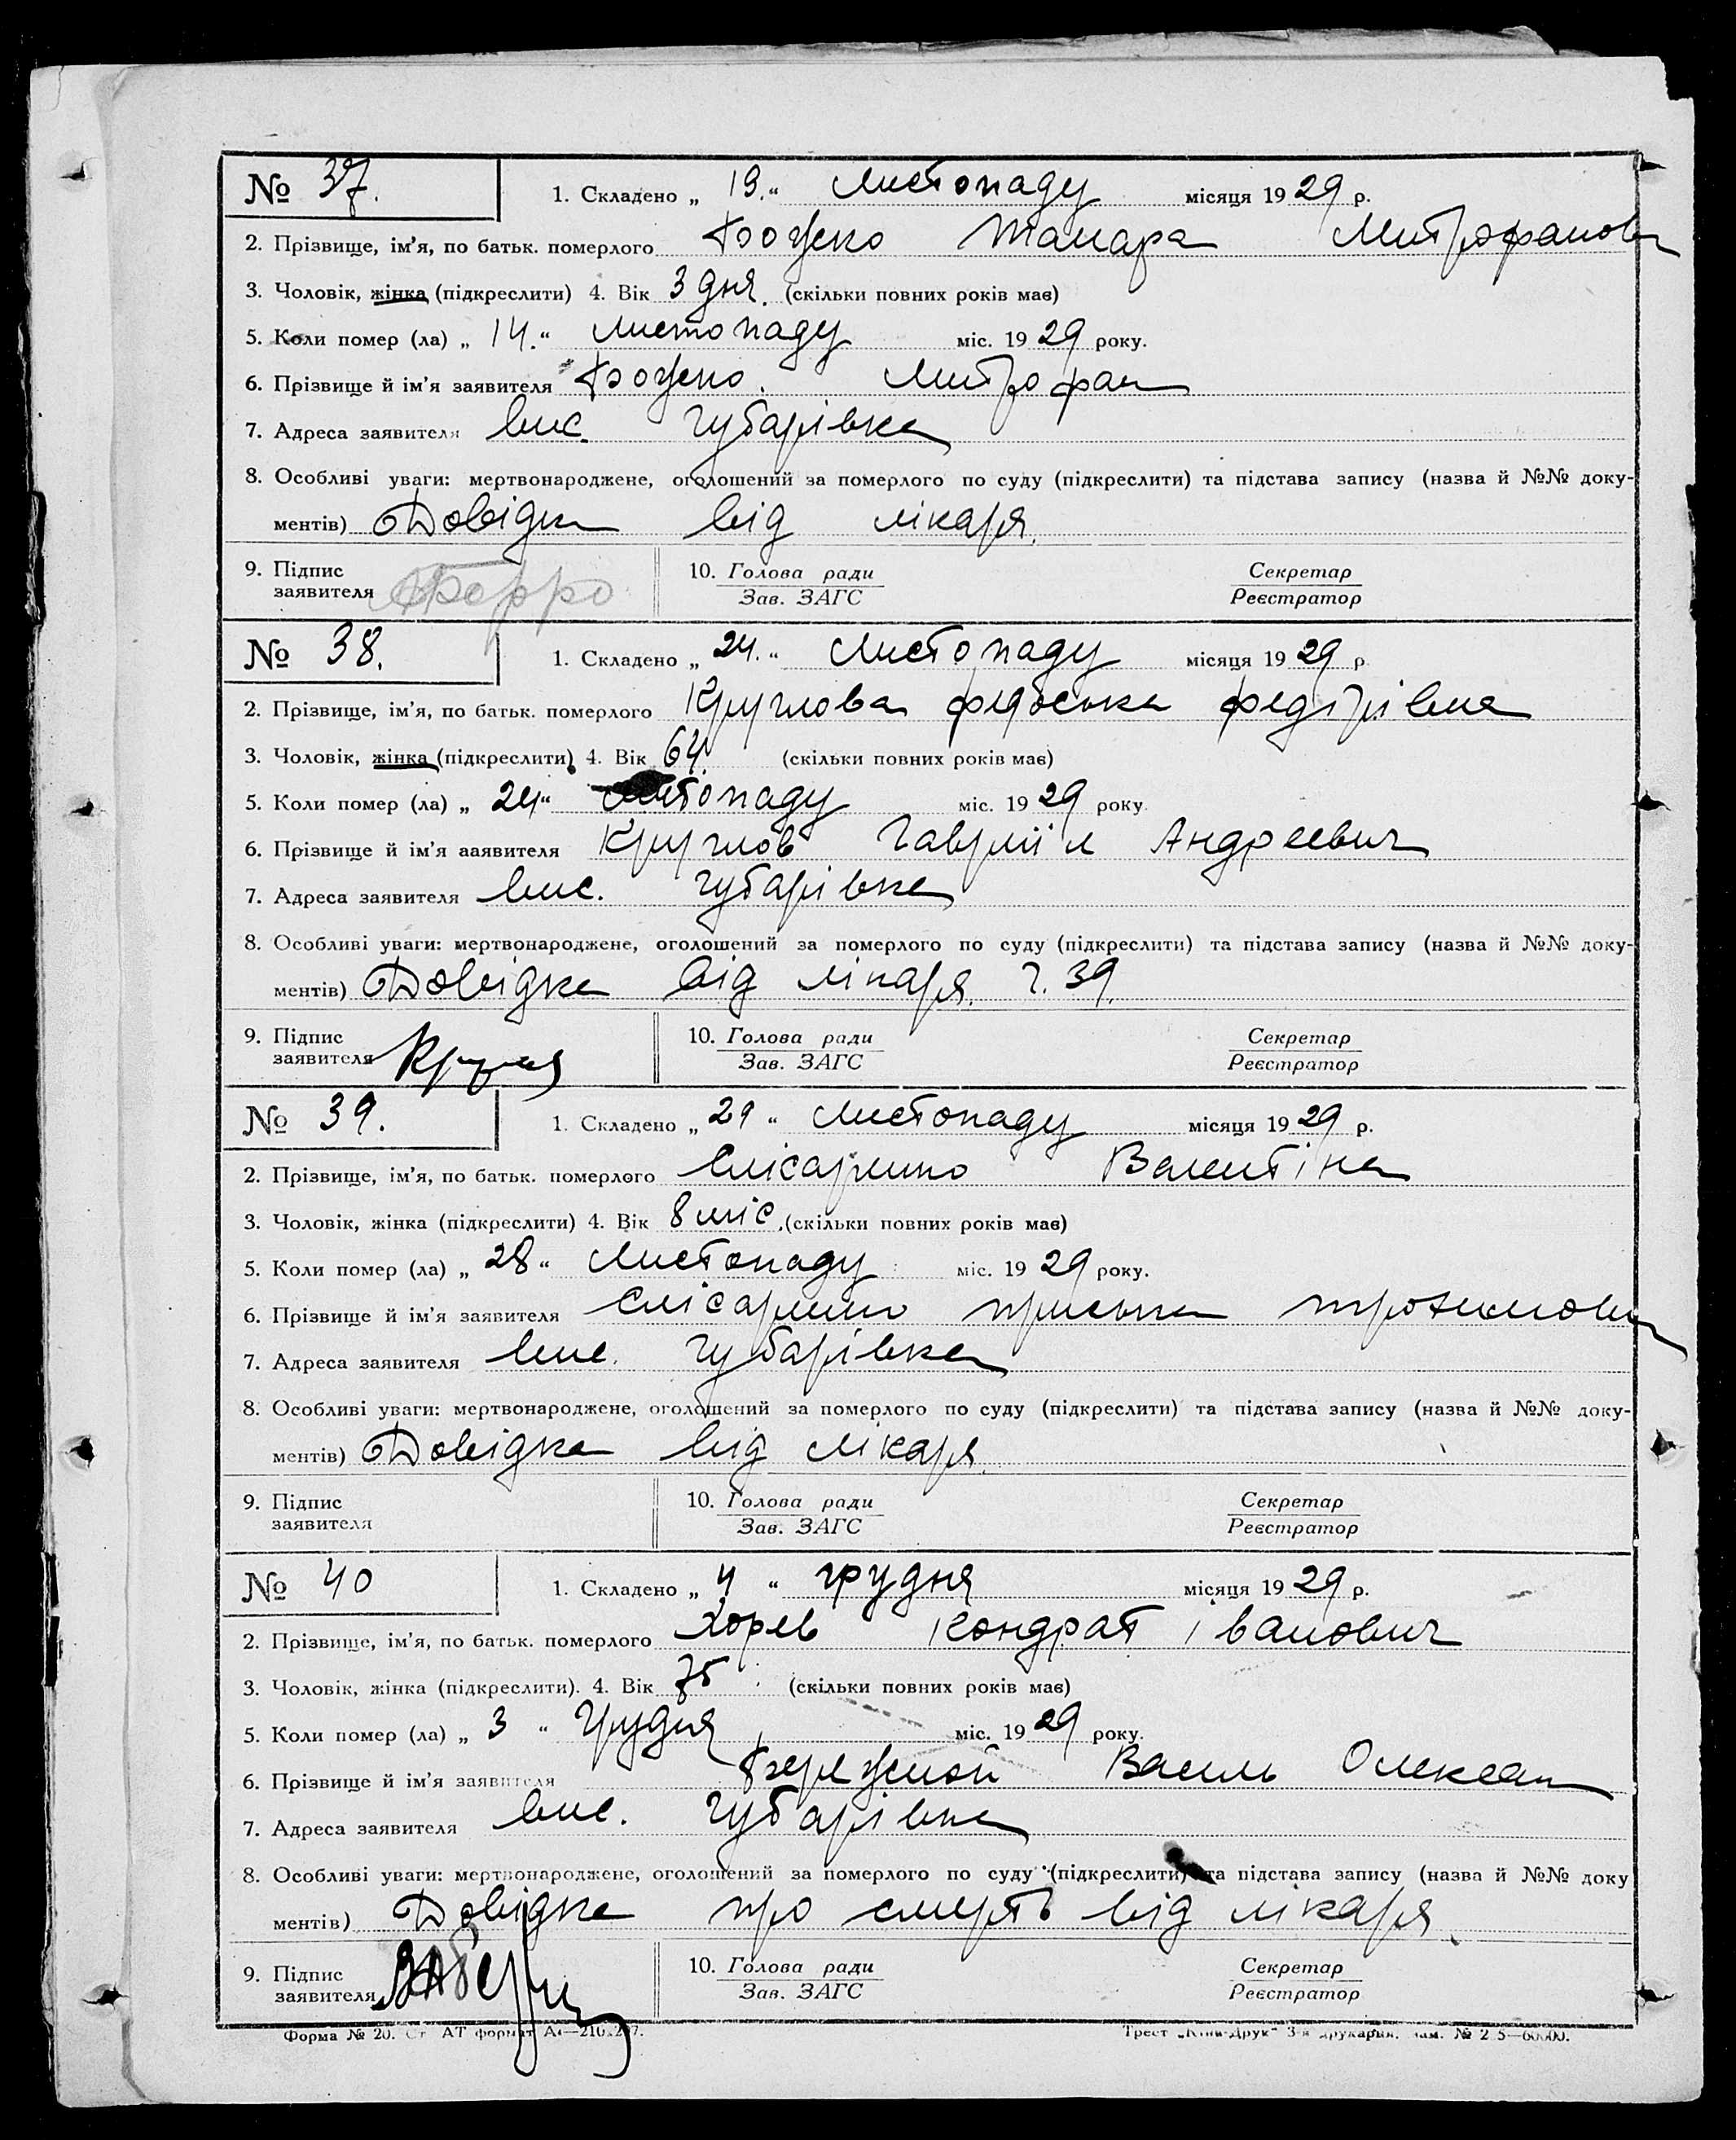 № 37. 1. Складено „ 19. “ Листопаду місяця 19 29 р.
2. Прізвище, ім'я, по батьк. померлого Божко Тамара Митрофанов
3. Чоловік, жінка (підкреслити) 4. Вік 3 дня. (скільки повних років має)
5. Коли помер (ла) „ 14. “ листопаду міс. 19 29 року.
6. Прізвище й ім'я заявителя Божко. Митрофан
7. Адреса заявителя вис. Губарівка
8. Особливі уваги: мертвонароджене, оголошений за померлого по суду (підкреслити) та підстава запису (назва й №№ доку-
ментів) Довідка від лікаря.
9. Підпис 10. Голова ради Секретар
заявителя Зав. ЗАГС Реєстратор
№ 38. 1. Складено „ 24. “ Листопаду місяця 19 29 р.
2. Прізвище, ім'я, по батьк. померлого Круглова Федоська Федорівна
3. Чоловік, жінка (підкреслити) 4. Вік 64. (скільки повних років має)
5. Коли помер (ла) „ 24 “ листопаду міс. 19 29 року.
6. Прізвище й ім'я заявителя Круглов Гавриїл Андреевич
7. Адреса заявителя вис. Губарівка
8. Особливі уваги: мертвонароджене, оголошений за померлого по суду (підкреслити) та підстава запису (назва й №№ доку-
ментів) Довідка від лікаря. Ч. 39.
9. Підпис 10. Голова ради Секретар
заявителя Зав. ЗАГС Реєстратор
№ 39. 1. Складено „ 29 “ Листопаду місяця 19 29 р.
2. Прізвище, ім'я, по батьк. померлого Слісаренко Валентіна
3. Чоловік, жінка (підкреслити) 4. Вік 8 міс. (скільки повних років має)
5. Коли помер (ла) „ 28 “ Листопаду міс. 19 29 року.
6. Прізвище й ім'я заявителя Слісаренко Приська
7. Адреса заявителя вис. Губарівка
8. Особливі уваги: мертвонароджене, оголошений за померлого по суду (підкреслити) та підстава запису (назва й №№ доку-
ментів) Довідка від лікаря.
9. Підпис 10. Голова ради Секретар
заявителя Зав. ЗАГС Реєстратор
№ 40 1. Складено „ 4 “ грудня місяця 19 29 р.
2. Прізвище, ім'я, по батьк. померлого Хорев Кондрат Іванович
3. Чоловік, жінка (підкреслити). 4. Вік 75 (скільки повних років має)
5. Коли помер (ла) „ 3 “ Грудня міс. 19 29 року.
6. Прізвище й ім'я заявителя Бережной Василь Олексан
7. Адреса заявителя вис. Губарівка
8. Особливі уваги: мертвонароджене, оголошений за померлого по суду (підкреслити) та підстава запису (назва й №№ доку
ментів) Довідка про смерть від лікаря
9. Підпис 10. Голова ради Секретар
заявителя Зав. ЗАГС Реєстратор
Форма № 20. Ст. АТ формат А4—210х297. Трест „Київ-Друк“ 3-я друкарня.